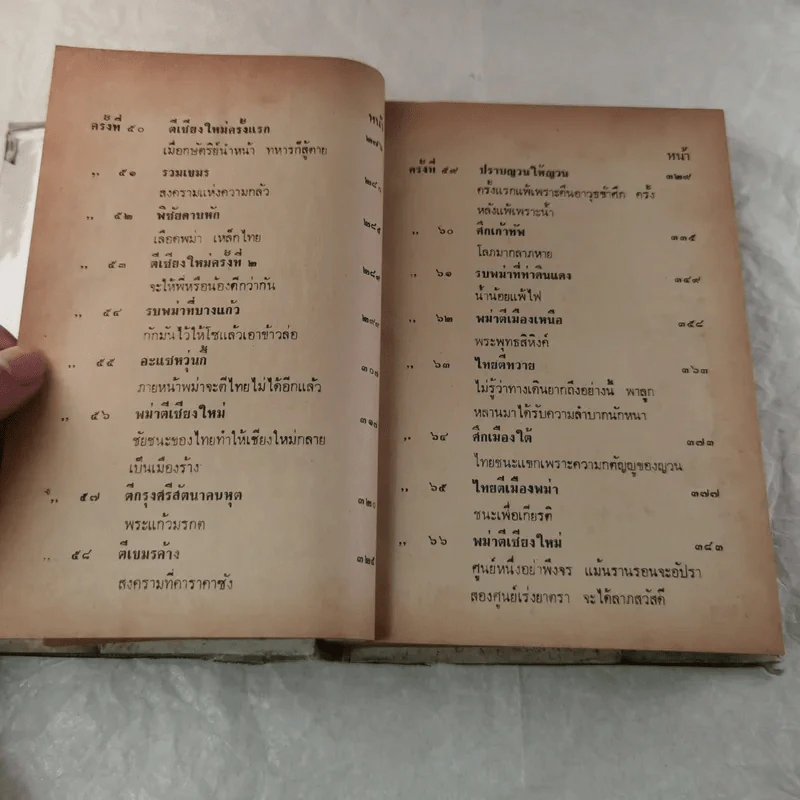 หน้า
ครั้งที่ ๕๐ ตีเชียงใหม่ครั้งแรก
เมื่อกษัตริย์นำหน้า ทหารก็สู้ตาย
,, ๕๑ รวมเขมร
สงครามแห่งความกลัว
,, ๕๒ พิชัยดาบหัก
เลือดพม่า เหล็กไทย
,, ๕๓ ตีเชียงใหม่ครั้งที่ ๒
จะให้พี่หรือน้องดีกว่ากัน
,, ๕๔ รบพม่าที่บางแก้ว
กักมันไว้ให้โซแล้วเอาข้าวล่อ
,, ๕๕ อะแซหวุ่นกี้
ภายหน้าพม่าจะตีไทยไม่ได้อีกแล้ว
,, ๕๖ พม่าตีเชียงใหม่
ชัยชนะของไทยทำให้เชียงใหม่กลาย
เป็นเมืองร้าง
,, ๕๗ ตีกรุงศรีสัตนาคนหุต ๓๒๐
พระแก้วมรกต
,, ๕๘ ตีเขมรค้าง
สงครามที่คาราคาซัง
หน้า
ครั้งที่ ๕๙ ปราบญวนให้ญวน ๓๒๙
ครั้งแรกแพ้เพราะคืนอาวุธข้าศึก ครั้ง
หลังแพ้เพราะน้ำ
,, ๖๐ ศึกเก้าทัพ ๓๓๕
โลภมากลาภหาย
,, ๖๑ รบพม่าที่ท่าดินแดง ๓๔๙
น้ำน้อยแพ้ไฟ
,, ๖๒ พม่าตีเมืองเหนือ ๓๕๘
พระพุทธสิหิงค์
,, ๖๓ ไทยตีทวาย ๓๖๓
ไม่รู้ว่าทางเดินยากถึงอย่างนี้ พาลูก
หลานมาได้รับความลำบากนักหนา
,, ๖๔ ศึกเมืองใต้ ๓๗๓
ไทยชนะแขกเพราะความกตัญญูของญวน
,, ๖๕ ไทยตีเมืองพม่า ๓๗๗
ชนะเพื่อเกียรติ
,, ๖๖ พม่าตีเชียงใหม่ ๓๘๓
ศูนย์หนึ่งอย่าพึงจร แม้นรานรอนจะอัปรา
สองศูนย์เร่งยาตรา จะได้ลาภสวัสดี